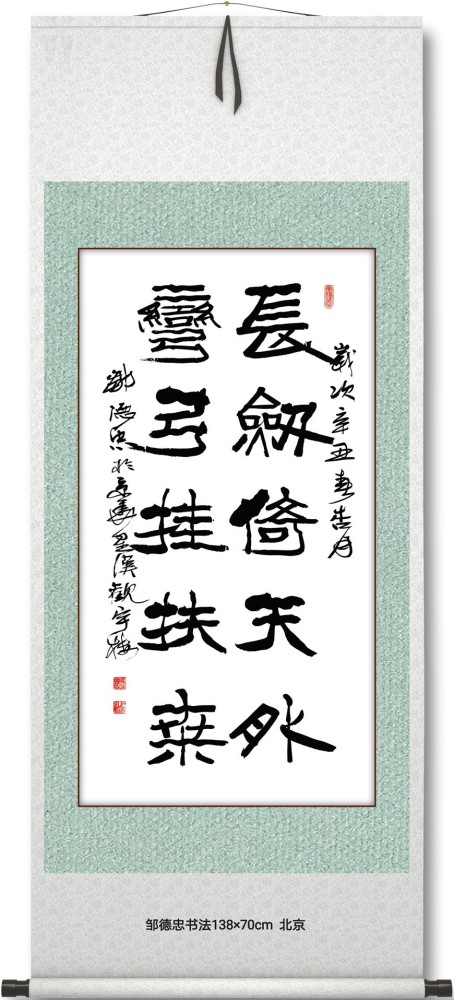 歲次辛丑春吉月
長劍倚天外
彎弓挂扶桑
鄒德忠於京華
邹德忠书法138×70cm 北京